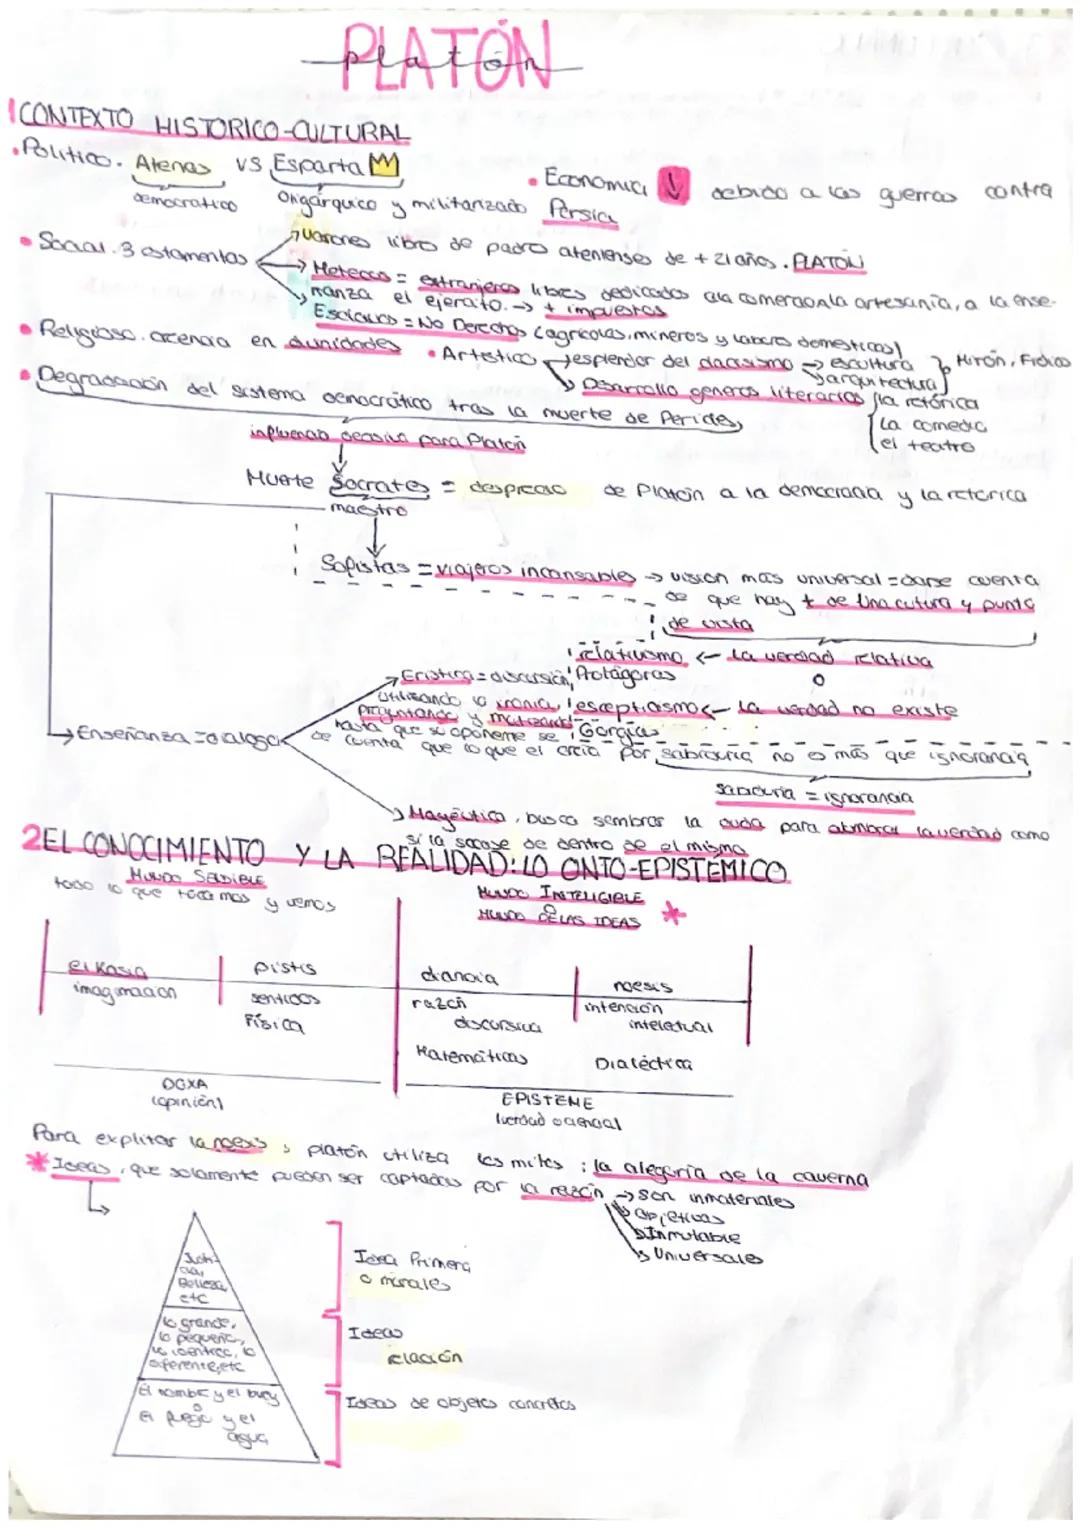 PLATÓN
platón
1 CONTEXTO HISTORICO-CULTURAL
• Político. Atenas vs Esparta
democratico
oligárquico y militarizado
• Economica ↓ debido a las guerras contra
Persia
• Social. 3 estamentos
→ varones libro de padre atenienses de + 21 años. PLATÓN
→ Metecos = extranjeros libres dedicados a la comercion la artesanía, a la ense-
nanza el ejercito. → + impuestos
Esclavos = No Derechos (agrícolas, mineros y labores domesticas)
• Religioso. creencia en divinidades
• Artístico
→ esplendor del clasicismo → escultura
→ arquitectura
} Mirón, Fidias
→ Desarrollo generos literarios
{ la retórica
la comedia
el teatro
• Degradación del sistema democrático tras la muerte de Pericles
influencia decisiva para Platón
Muerte Socrates = desprecio de Platón a la democracia y la retorica
maestro
Sofistas = viajeros incansables → vision mas universal = darse cuenta
de que hay + de una cultura y punto
de vista
relativismo ← la verdad relativa
Protágoras
o
escepticismo ← la verdad no existe
Gorgias
→ Enseñanza = dialogo
→ Eristica = discursión
utilizando la ironia,
preguntando y matizando
hasta que su oponeme se
de cuenta que lo que el creía por sabiduría no es más que ignorancia
sabiduría = ignorancia
→ Mayéutica, busca sembrar la duda para alumbrar la verdad como
si la sacase de dentro de el mismo
2 EL CONOCIMIENTO Y LA REALIDAD: LO ONTO-EPISTEMICO
MUNDO SENSIBLE
todo lo que tocamos y vemos
MUNDO INTELIGIBLE
MUNDO DE LAS IDEAS *
eikasia
imaginacion
pistis
sentidos
Física
dianoia
razón
discursiva
Matemáticas
noesis
intención
inteletual
Dialéctica
DOXA
(opinión)
EPISTEME
(verdad o ciencia)
Para explicar la noesis, platón utiliza los mitos: la alegoría de la caverna
* Ideas, que solamente pueden ser captadas por la razón → son inmateriales
objetivas
Inmutable
Universales
Justi-
cia,
Belleza,
etc
Idea Primera
o morales
lo grande,
lo pequeño,
lo identico, lo
diferente, etc
Ideas
relación
El hombre y el buey
o
El fuego y el
agua
Ideas de objetos concretos